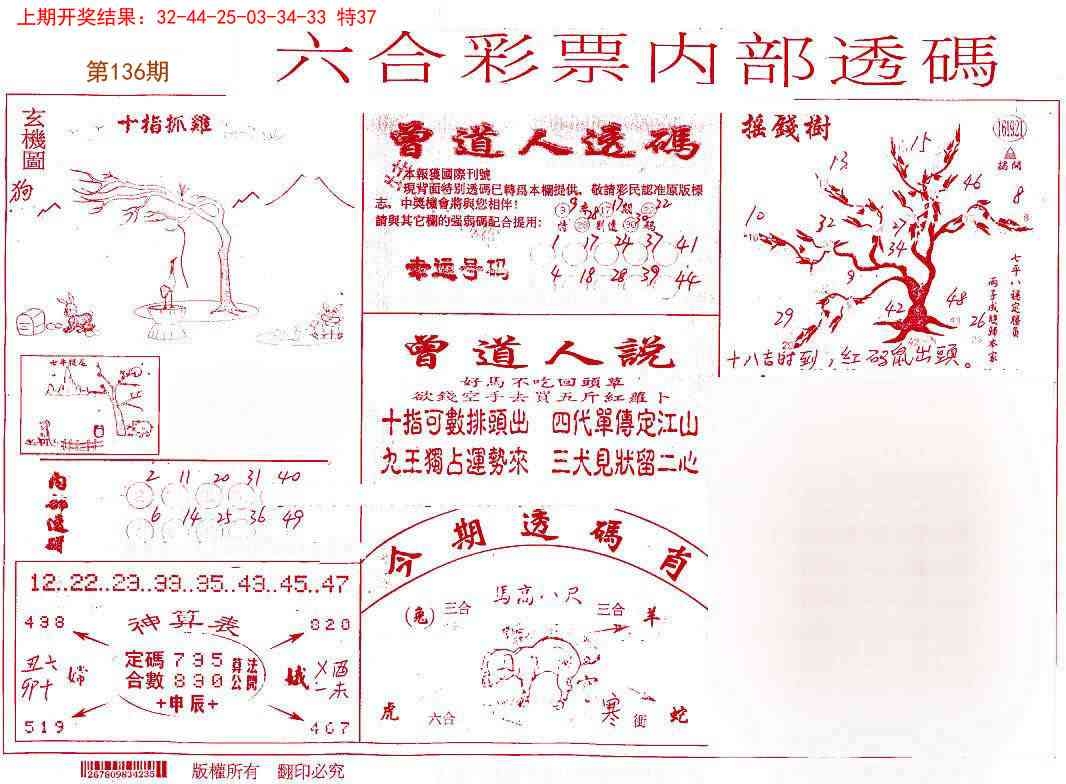 上期开奖结果：32-44-25-03-34-33 特37
第136期
六合彩票内部透碼
玄機圖
十指抓雞
狗
曾道人透碼
本報獲國際刊號
現背面特別透碼已轉爲本欄提供，敬請彩民認准原版標
志，中獎機會將與您相伴！
請與其它欄的強弱碼配合提用：
幸运号码
1 17 24 37 41
4 18 28 39 44
曾道人說
好馬不吃回頭草
欲錢空手去買五斤紅蘿卜
十指可數排頭出 四代單傳定江山
九王獨占運勢來 三犬見狀留二心
摇錢樹
161921
15
13
46
8
10
32
27
34
9
29
42
48
26
十八吉时到，紅码鼠出頭。
内部透碼
2 11 20 31 40
6 14 25 36 49
12..22..29..33..35..43..45..47
神算表
498
020
定碼 795
合數 830
算公
法開
+申辰+
519
467
丑七
卯十
嫦
娥
酉
未
今期透碼肖
馬高八尺
(兔)
三合
三合
羊
虎
六合
寒
衝
蛇
267809834235
版權所有 翻印必究